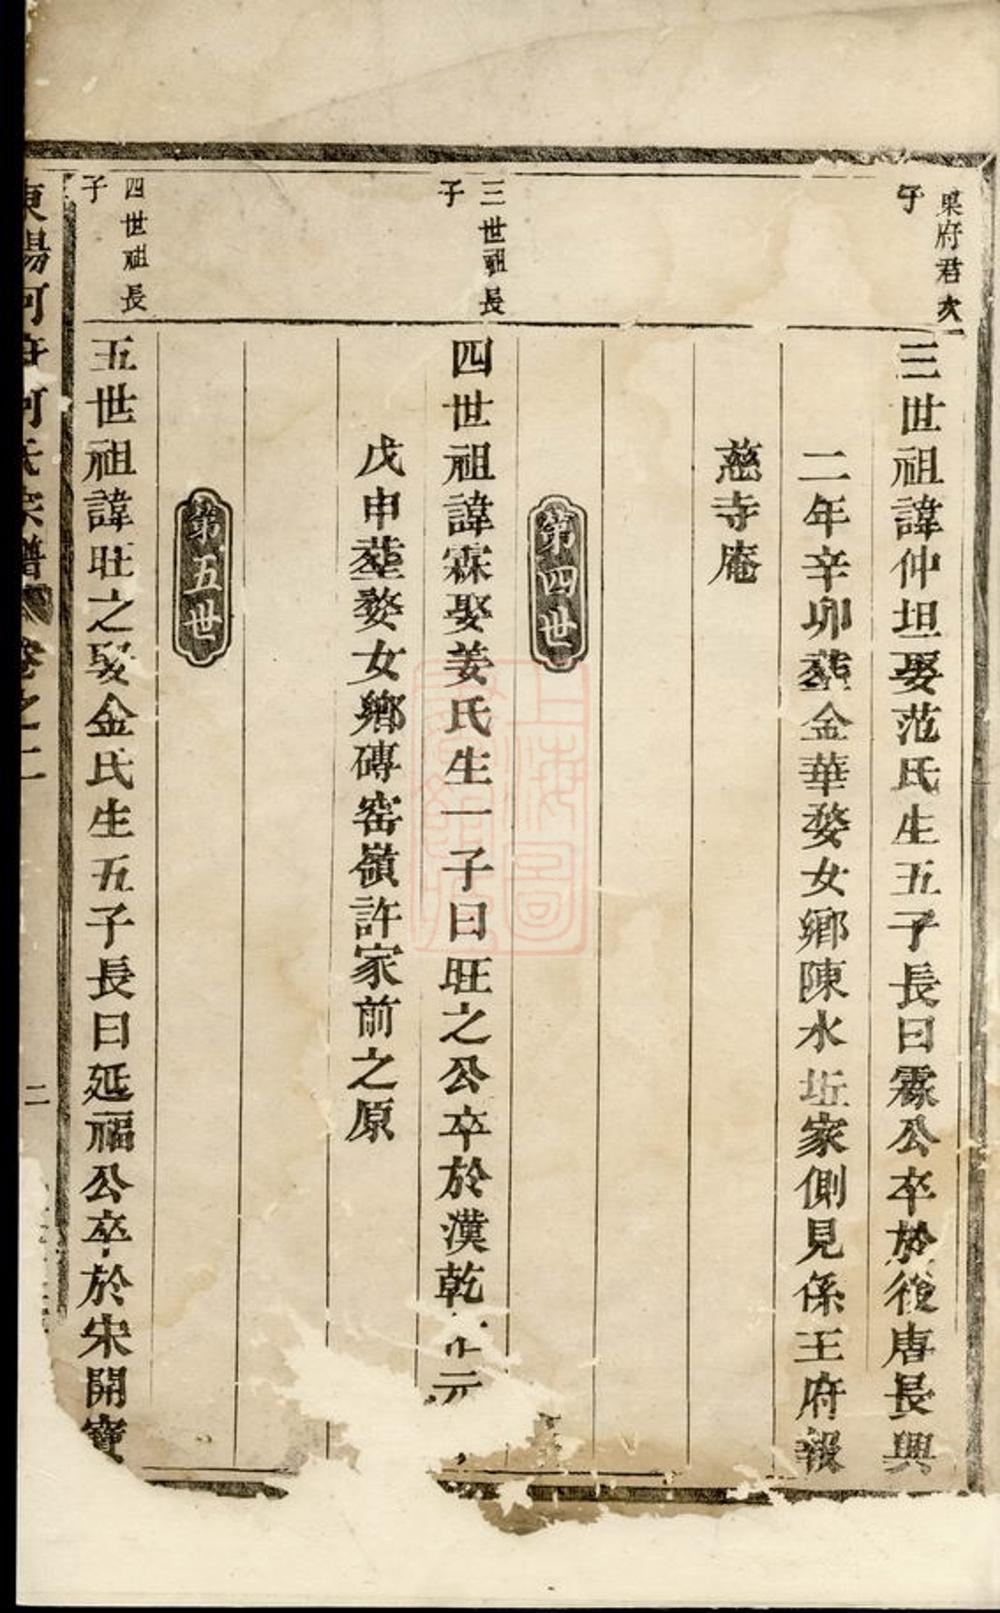 杲府君次
子
三世祖諱仲坦娶范氏生五子長曰霖公卒於後唐長興
二年辛卯塟金華婺女鄉陳水坵家側見係王府報
慈寺庵
第四世
三世祖長
子
四世祖諱霖娶姜氏生一子曰旺之公卒於漢乾元
戊申塟婺女鄉磚窑嶺許家前之原
第五世
四世祖長
子
五世祖諱旺之娶金氏生五子長曰延福公卒於宋開寶
東陽何府何氏宗譜 卷之二
二